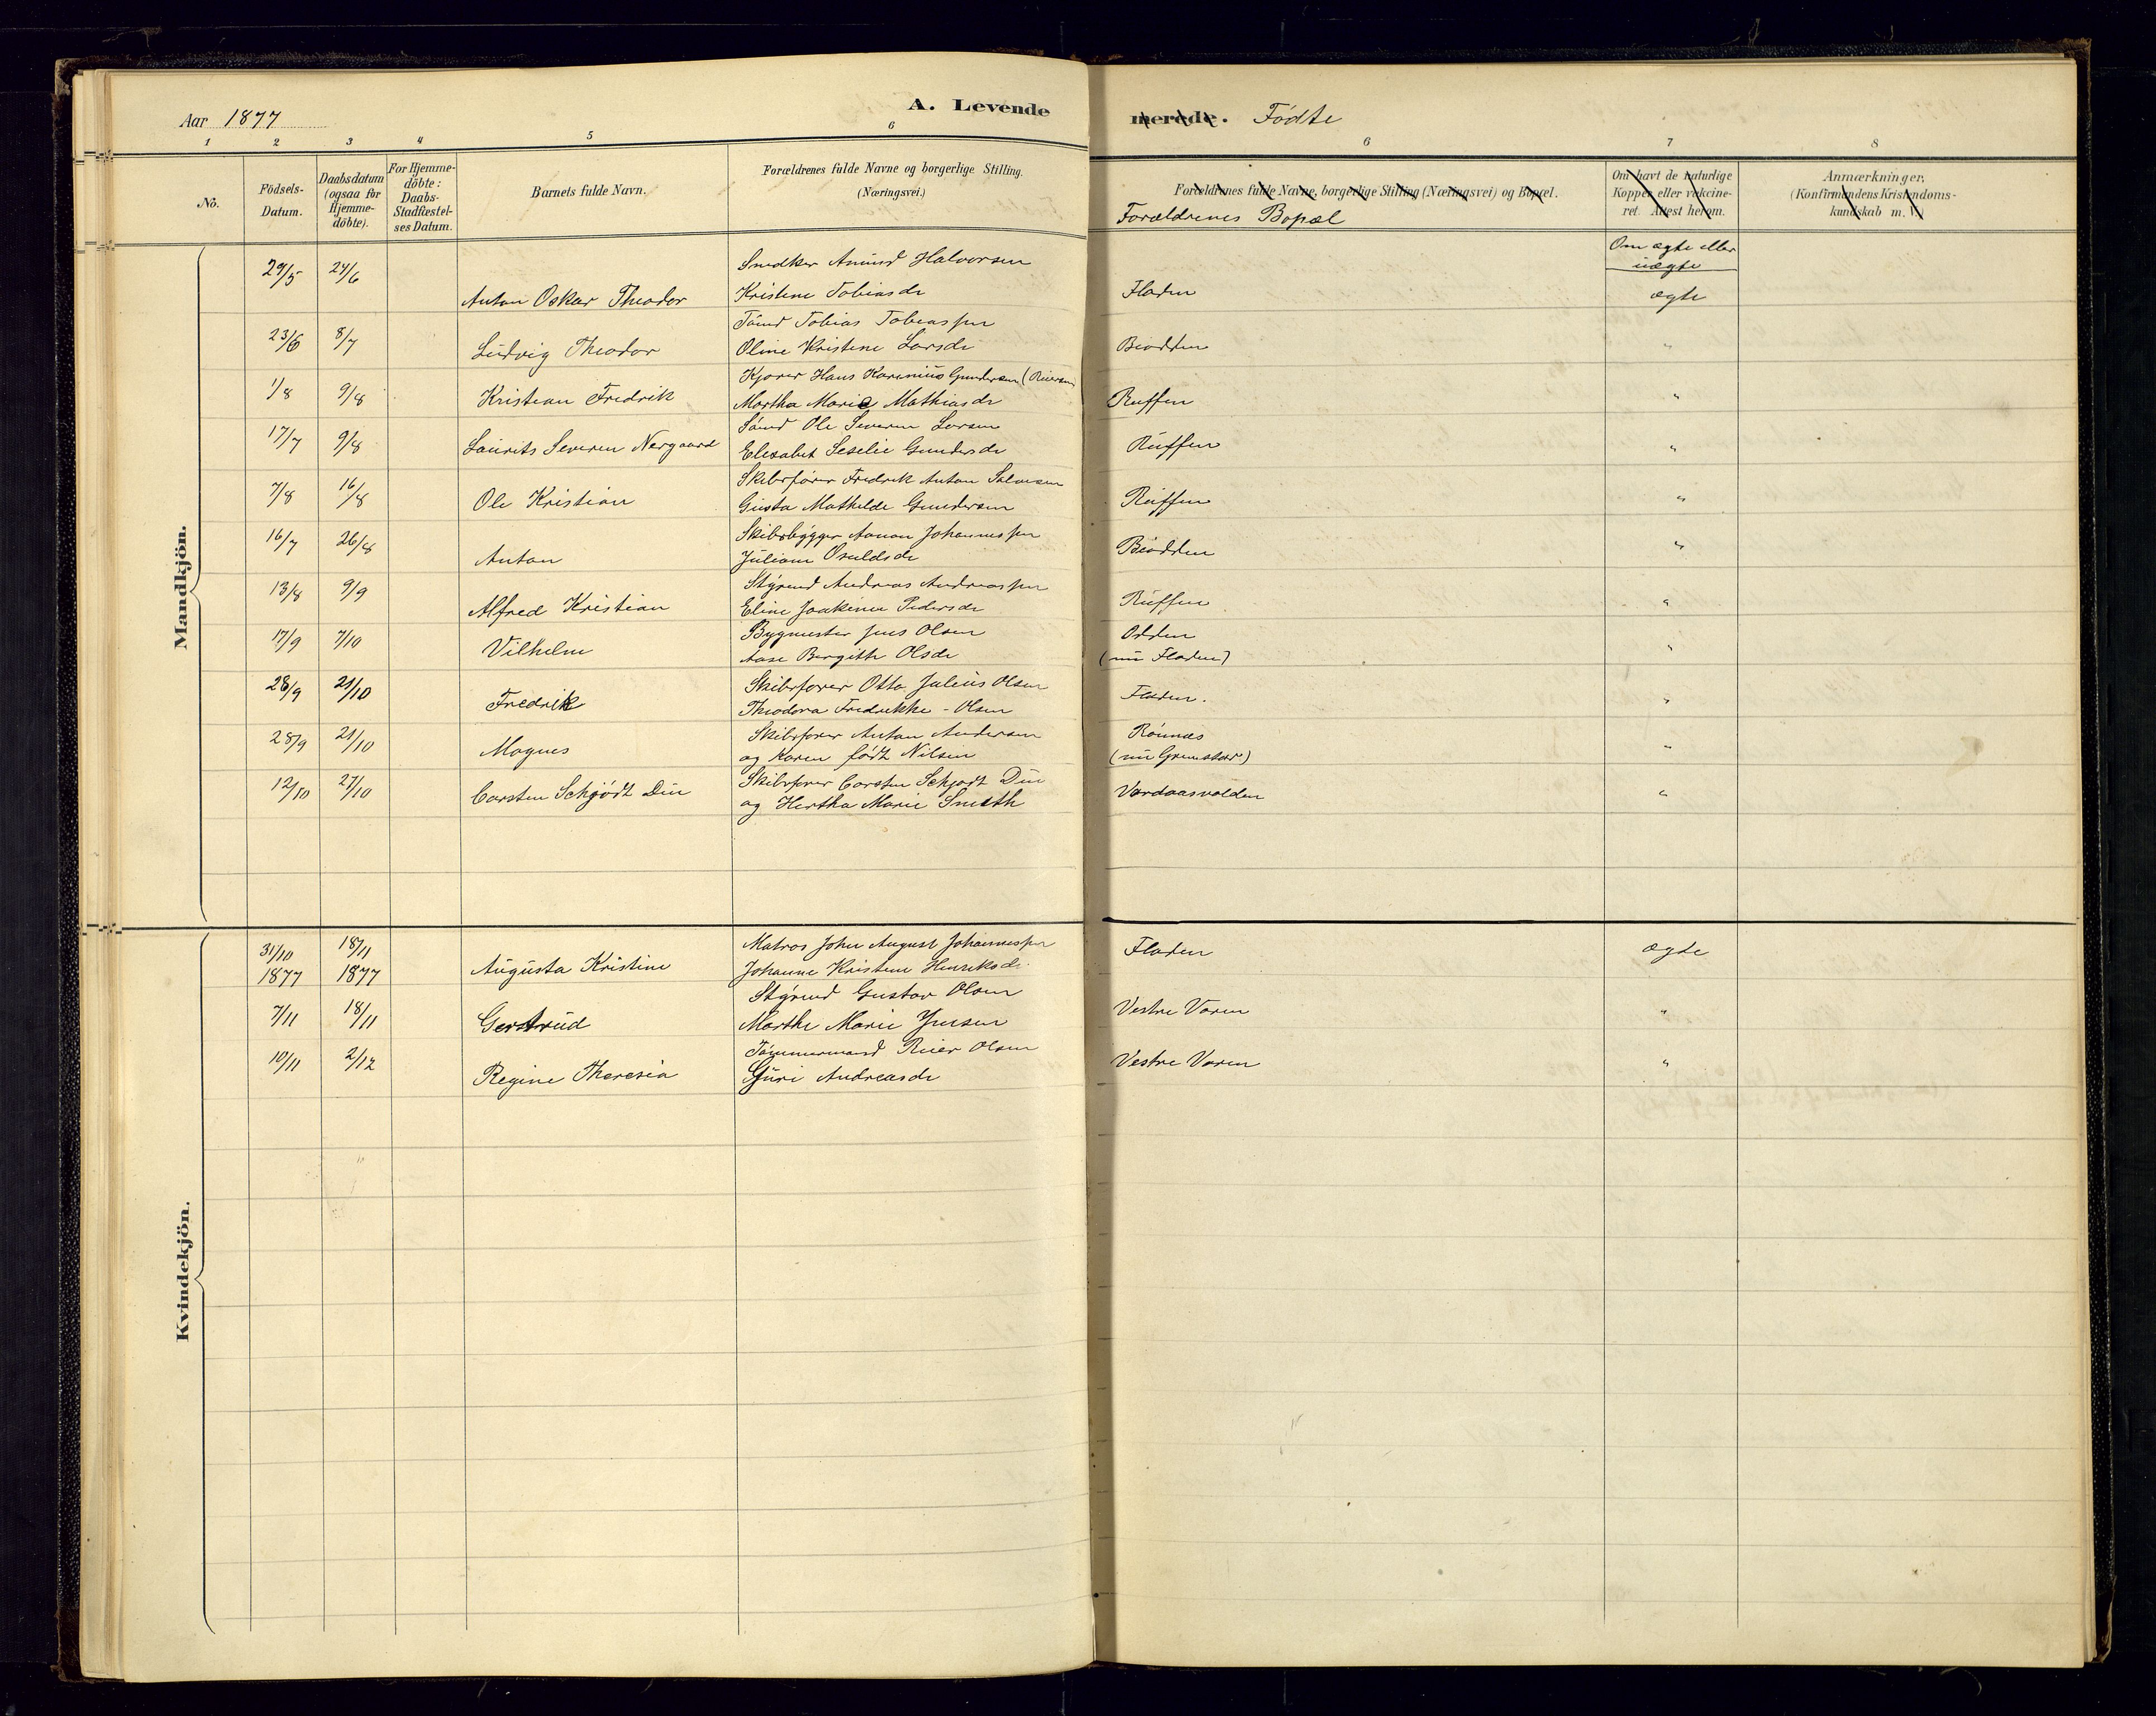 Aar 1877
A. Levende
merede. Födte
1 2 3 4 5 6 6 7 8
No.
Födsels-
Datum.
Daabsdatum
(ogsaa for
Hjemme-
döbte).
For Hjemme-
döbte:
Daabs-
Stadfæstel-
ses Datum.
Barnets fulde Navn.
Forældrenes fulde Navne og borgerlige Stilling.
(Næringsvei.)
Forældrenes fulde Navne, borgerlige Stilling (Næringsvei) og Bopæl.
Forældrenes Bopæl
Om havt de naturlige
Kopper eller vakcine-
ret. Attest herom.
Anmærkninger,
(Konfirmandens Kristendoms-
kundskab m. V.)
Om ægte eller
uægte
Mandkjön.
Snedker Amund Halvorsen
29/5 24/6 Anton Oskar Theodor Kristene Tobiasdr Fladen ægte
Tömd Tobias Tobiassen
23/6 8/7 Ludvig Theodor Oline Kristene Larsdr Brodden "
Kjører Hans Karenius Gundersen (Reiersen)
1/8 9/8 Kristian Fredrik Martha Marie Mathiasdr Ruffen "
Tömd Ole Severin Larsen
17/7 9/8 Laurits Severen Nergaard Elesabet Seselie Gundersdr Ruffen "
Skibsfører Fredrik Anton Salvesen
7/8 16/8 Ole Kristian Gusta Mathilde Gundersen Ruffen "
Skibsbygger Aanon Johannessen
16/7 26/8 Anton Juliane Osuldsdr Brodden "
Styrmd Andreas Andreassen
13/8 9/9 Alfred Kristian Eline Joakime Pedersdr Ruffen "
17/9 7/10 Vilhelm Bygmester Jens Olsen Odden "
Aase Bergithe Olsdr (nu Fladen)
28/9 21/10 Fredrik Skibsfører Otto Julius Olsen Fladen. "
Theodora Fredrikke - Olsen
28/9 21/10 Magnes Skibsfører Anton Andersen Rönnes "
og Karen födt Nilsen (nu Grimstad)
12/10 27/10 Carsten Schjödt Due Skibsfører Carsten Schjødt Due Vardaasvolden "
og Hertha Marie Smith
Kvindekjön.
31/10 18/11 Matros John August Johannessen Fladen ægte
1877 1877 Augusta Kristine Johanne Kristene Henriksdr
Styrmd Gustav Olsen
7/11 18/11 Gerstrud Marthe Marie Jensen Vestre Voren "
Tömmermand Reier Olsen
10/11 2/12 Regine Theresia Guri Andreasdr Vestre Voren "